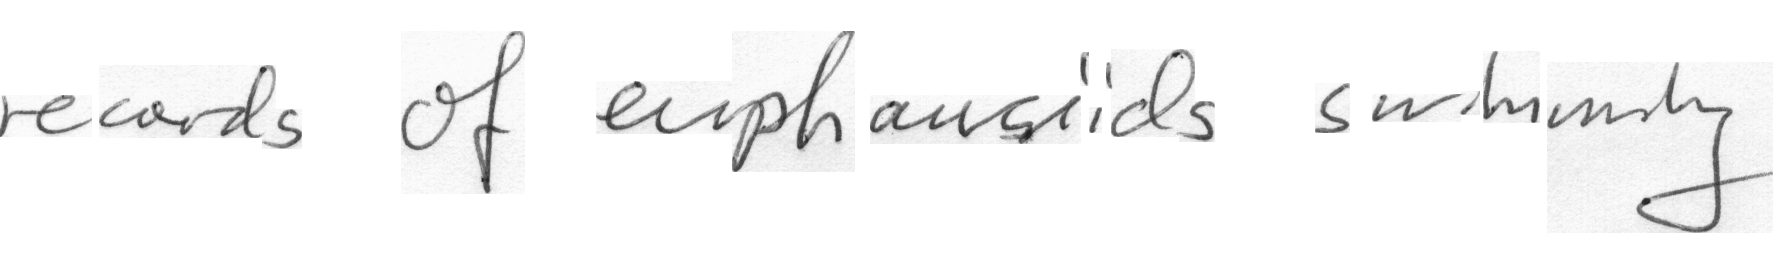 records of euphausiids swimming